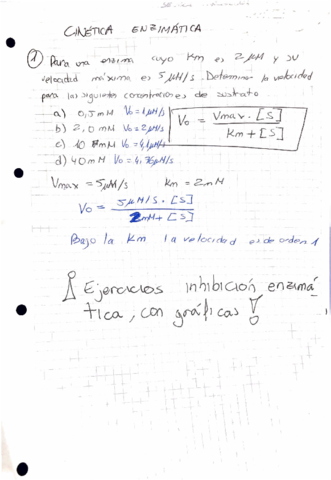 CINÉTICA ENZIMÁTICA
① Para una enzima cuyo Km es 2 μM y su
velocidad máxima es 5 μM/s. Determina la velocidad
para las siguientes concentraciones de sustrato
a) 0,5 mM V₀=1μM/s
b) 2,0 mM
c) 10 mM
d) 40 mM
V₀ = Vmax·[S] / Km+[S]
Vmax = 5μM/s Km = 2mM
V₀ = 5μM/s·[S] / 2mM+[S]
Bajo la Km la velocidad es de orden 1
¡Ejercicios inhibición enzimá
tica, con gráficas!